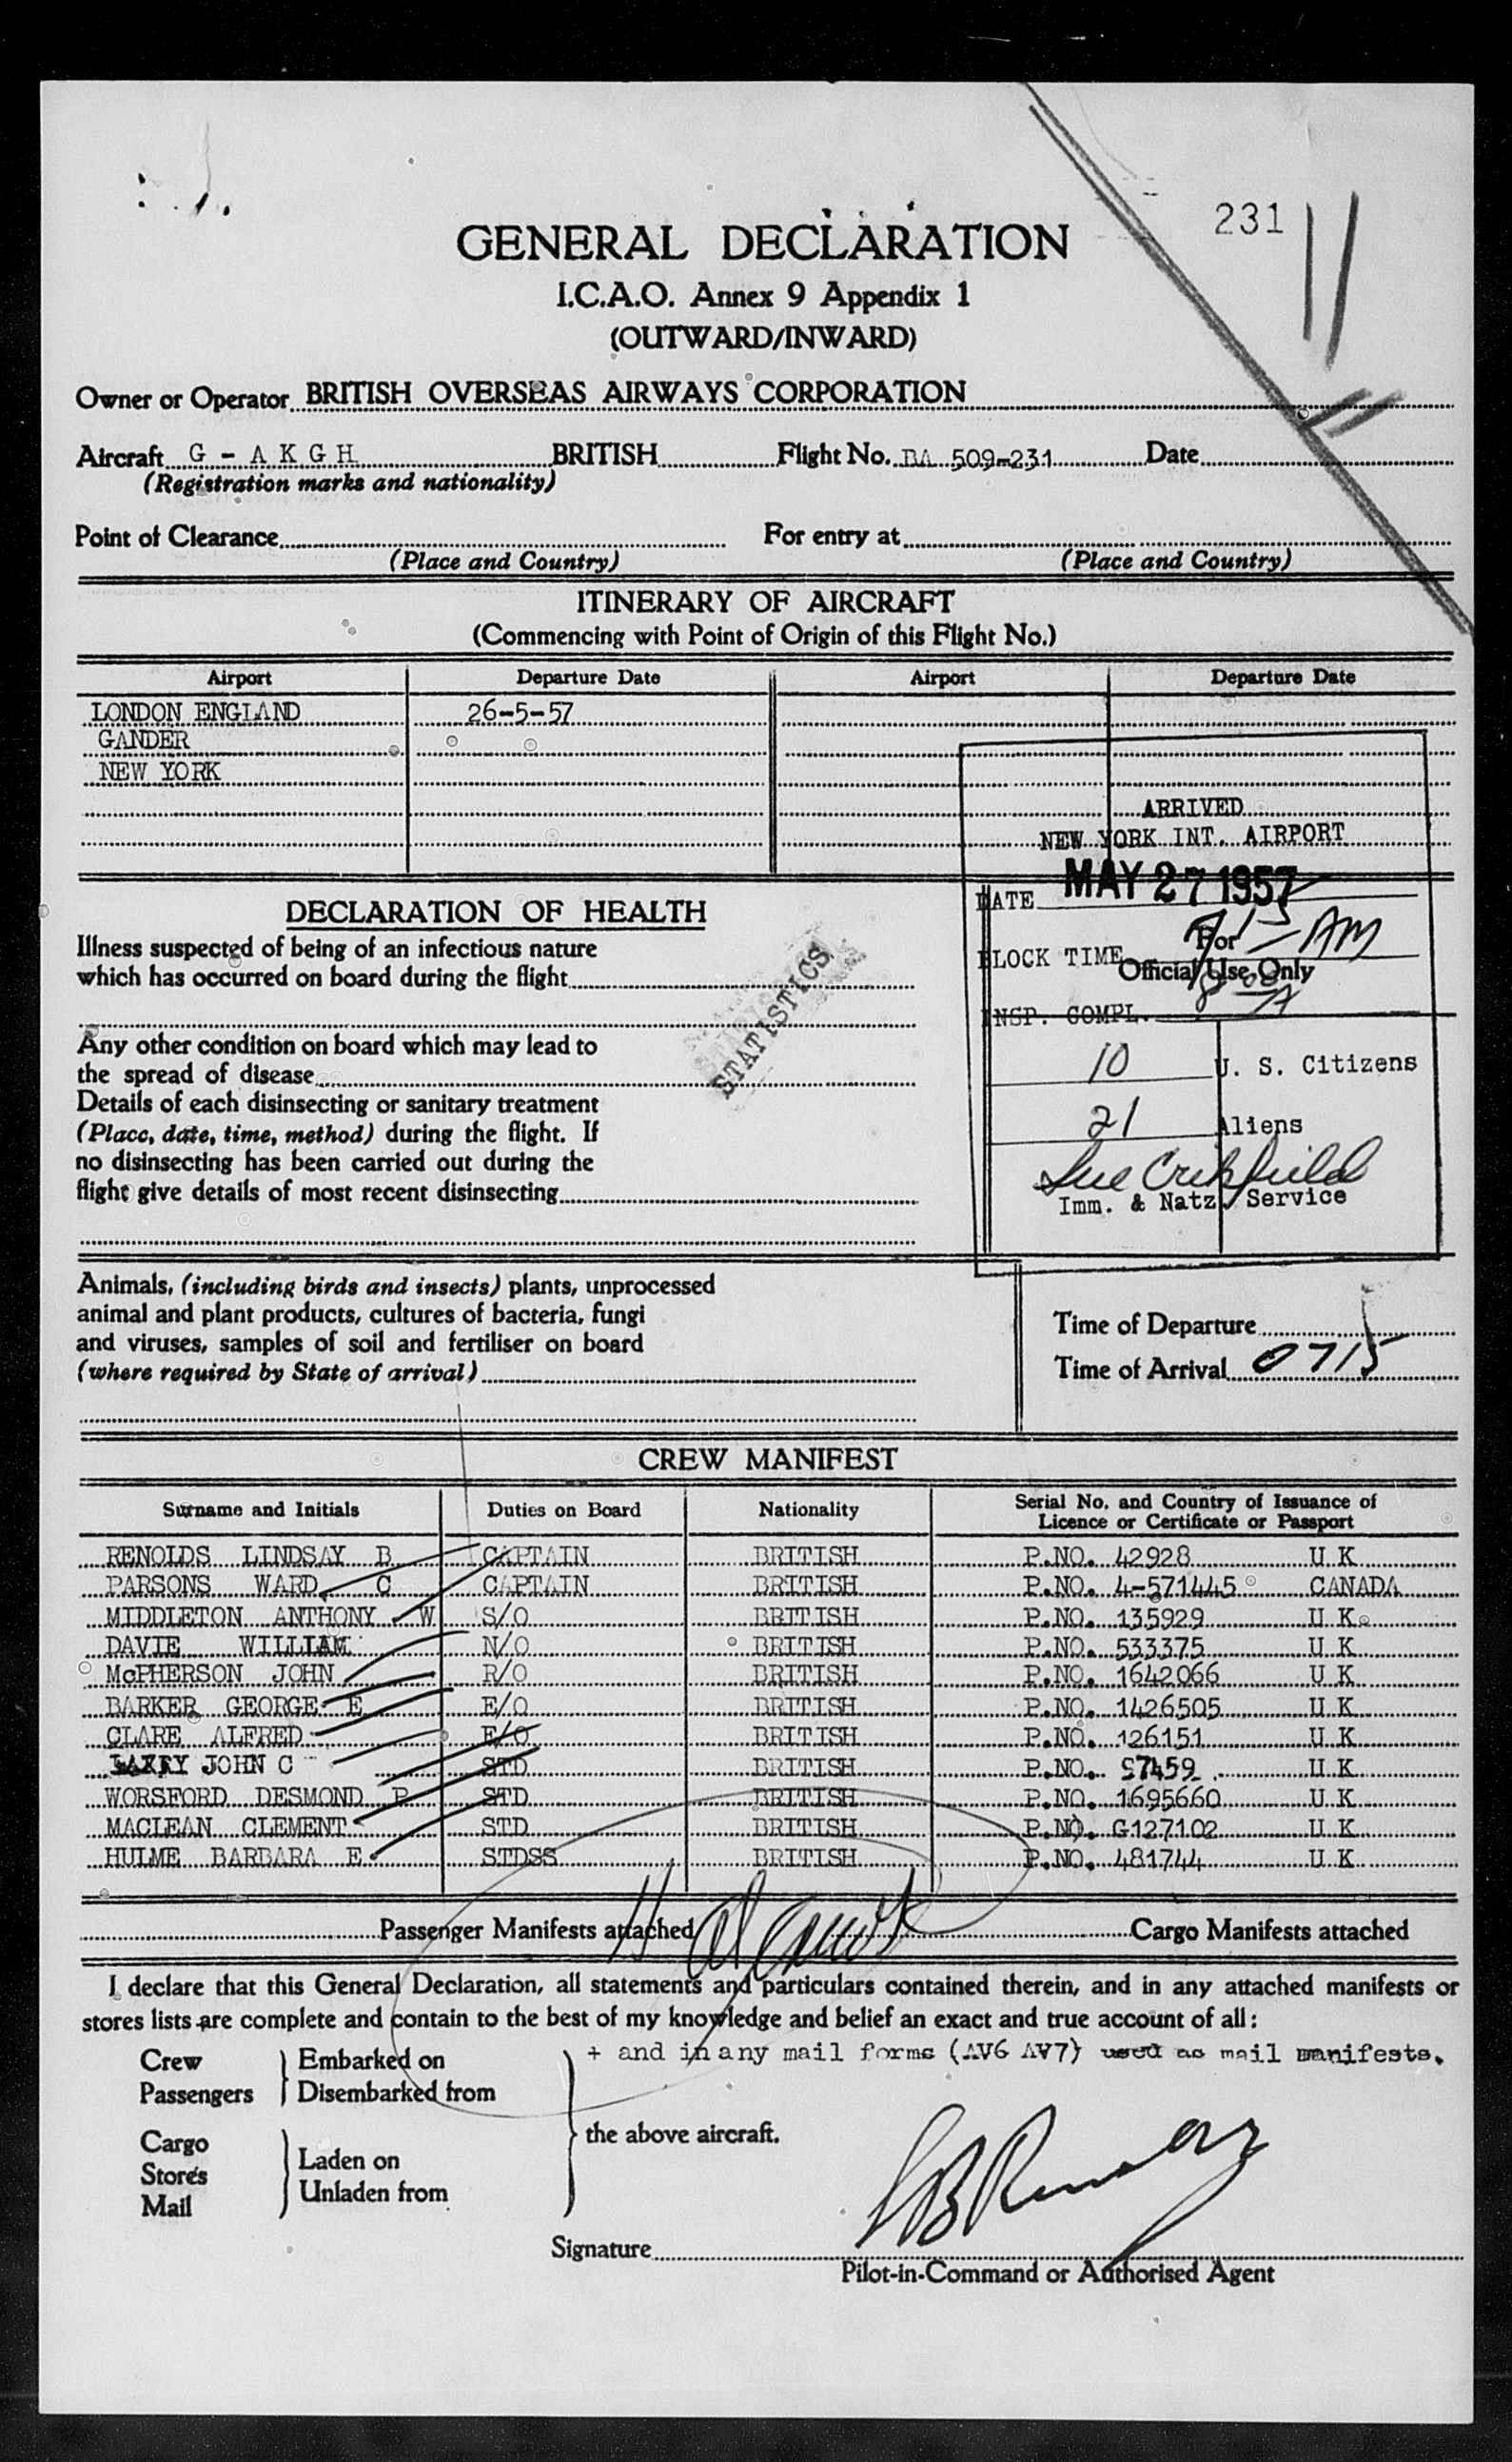 231
GENERAL DECLARATION
I.C.A.O. Annex 9 Appendix 1
(OUTWARD/INWARD)
Owner or Operator BRITISH OVERSEAS AIRWAYS CORPORATION
Aircraft G - A K G H BRITISH Flight No. BA 509-231 Date
(Registration marks and nationality)
Point of Clearance For entry at
(Place and Country) (Place and Country)
ITINERARY OF AIRCRAFT
(Commencing with Point of Origin of this Flight No.)
Airport Departure Date Airport Departure Date
LONDON ENGLAND 26-5-57
GANDER
NEW YORK
ARRIVED
NEW YORK INT. AIRPORT
DATE MAY 27 1957
BLOCK TIME 715 AM
For
Official Use Only
INSP. COMPL. 8 00 A
10 U. S. Citizens
21 Aliens
Imm. & Natz. Service
DECLARATION OF HEALTH
Illness suspected of being of an infectious nature
which has occurred on board during the flight
STATISTICS
Any other condition on board which may lead to
the spread of disease
Details of each disinsecting or sanitary treatment
(Place, date, time, method) during the flight. If
no disinsecting has been carried out during the
flight give details of most recent disinsecting
Animals, (including birds and insects) plants, unprocessed
animal and plant products, cultures of bacteria, fungi
and viruses, samples of soil and fertiliser on board
(where required by State of arrival)
Time of Departure
Time of Arrival 0715
CREW MANIFEST
Surname and Initials Duties on Board Nationality Serial No. and Country of Issuance of
Licence or Certificate or Passport
RENOLDS LINDSAY B CAPTAIN BRITISH P.NO. 42928 U K
PARSONS WARD C CAPTAIN BRITISH P.NO. 4-571445 CANADA
MIDDLETON ANTHONY W S/O BRITISH P.NO. 135929 U K
DAVIE WILLIAM N/O BRITISH P.NO. 533375 U K
McPHERSON JOHN R/O BRITISH P.NO. 1642066 U K
BARKER GEORGE E E/O BRITISH P.NO. 1426505 U K
CLARE ALFRED E/O BRITISH P.NO. 126151 U K
JOHN C STD BRITISH P.NO. S7459 U K
WORSFORD DESMOND P STD BRITISH P.NO. 1695660 U K
MACLEAN CLEMENT STD BRITISH P.NO. G127102 U K
HULME BARBARA E STDSS BRITISH P.NO. 481744 U K
Passenger Manifests attached Cargo Manifests attached
I declare that this General Declaration, all statements and particulars contained therein, and in any attached manifests or
stores lists are complete and contain to the best of my knowledge and belief an exact and true account of all:
+ and in any mail forms (AV6 AV7) used as mail manifests.
Crew Embarked on
Passengers Disembarked from
the above aircraft.
Cargo
Stores
Mail
Laden on
Unladen from
Signature
Pilot-in-Command or Authorised Agent